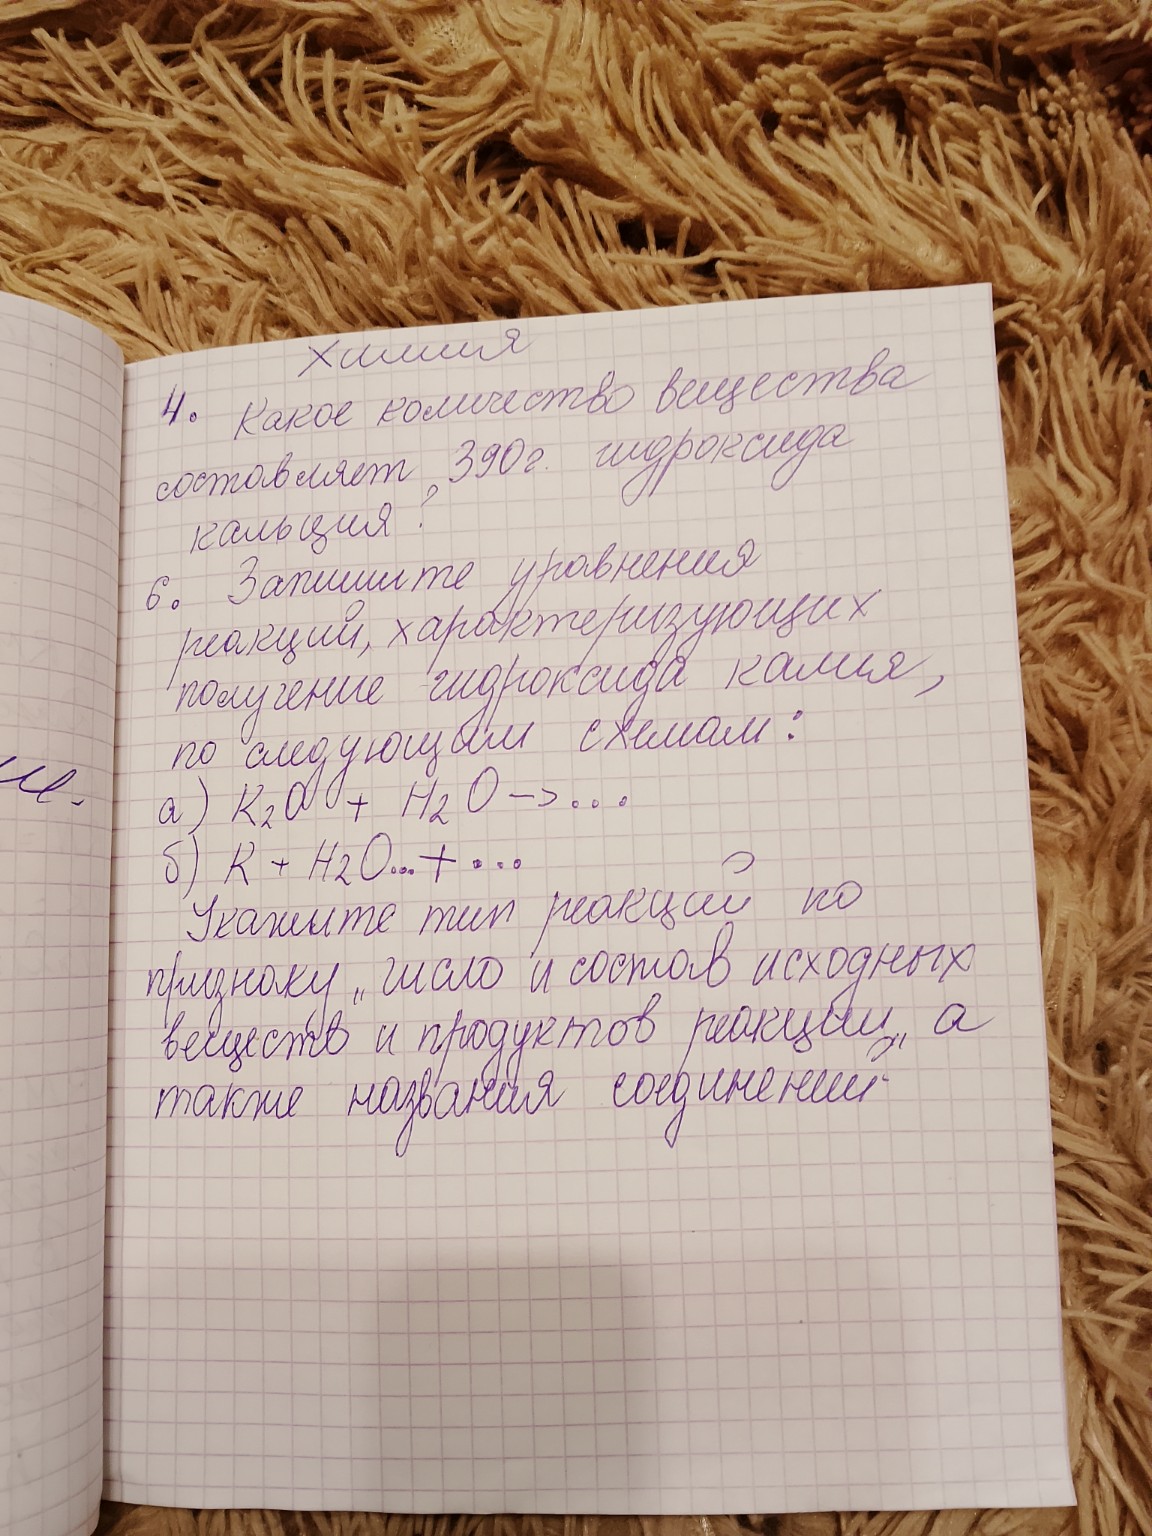 Химия
4. Какое количество вещества
составляет 390г. гидроксида
кальция?
6. Запишите уравнения
реакций, характеризующих
получение гидроксида калия,
по следующим схемам:
а) K₂O + H₂O -> ...
б) K + H₂O...+...
Укажите тип реакций по
признаку „число и состав исходных
веществ и продуктов реакции„ а
также названия соединений